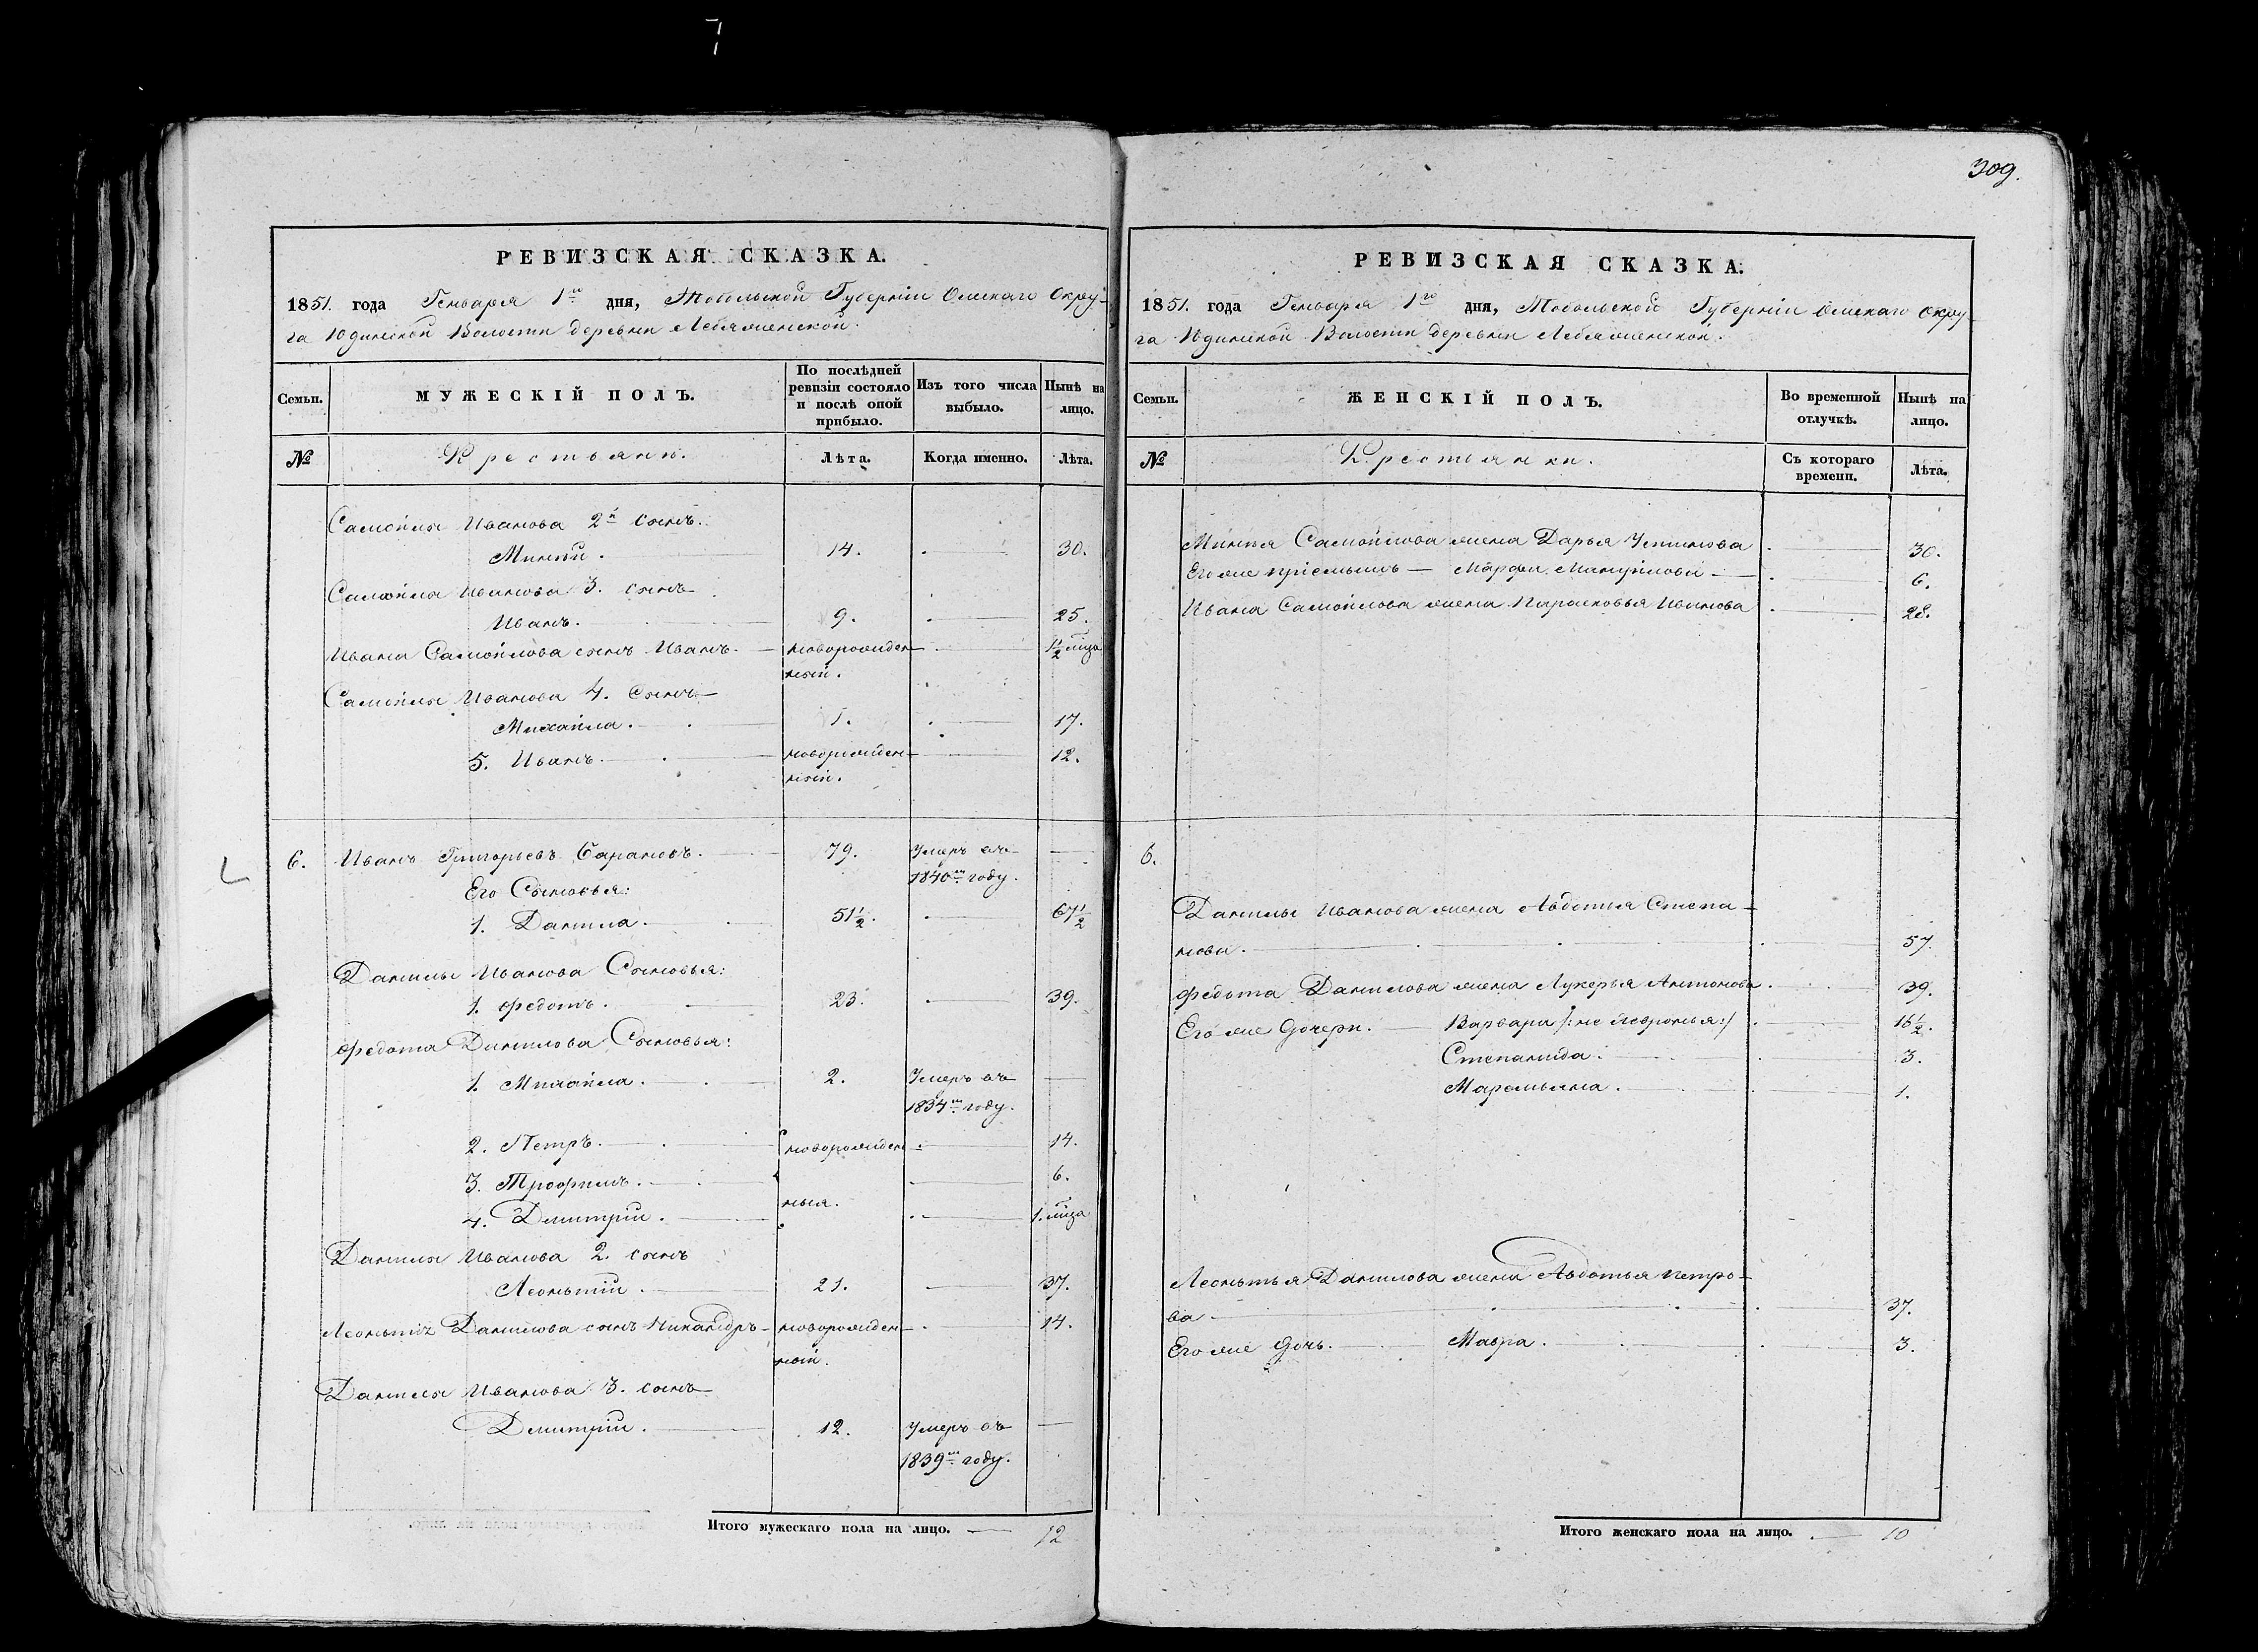 309.
РЕВИЗСКАЯ СКАЗКА.
1851. года Генваря 1го дня, Тобольской Губерніи Омскаго Окру-
га Юдинской Волости деревни Лебяженской.
Семьи. МУЖЕСКІЙ ПОЛЪ. По послѣдней ревизіи состояло и послѣ оной прибыло. Изъ того числа выбыло. Нынѣ на лицо.
№ Крестьяне. Лѣта. Когда именно. Лѣта.
Самойлы Иванова 2й сынъ.
Миній. 14. 30.
Самойлы Иванова 3. сынъ
Иванъ. 9. 25.
Ивана Самойлова сынъ Иванъ. новорожден- 1½ мца
ный.
Самойлы Иванова 4. сынъ
Михайла. 1. 17.
5. Иванъ. новорожден- 12.
ный.
6. Иванъ Григорьевъ Барановъ. 79. Умеръ въ —
Его Сыновья: 1840м году.
1. Данила. 51½. 67½
Данилы Иванова Сыновья:
1. Федотъ. 23. 39.
Федота Данилова Сыновья:
1. Михайла. 2. Умеръ въ —
1834м году.
2. Петръ. новорожден- 14.
3. Трофимъ. 6.
ныя.
4. Дмитрій. 1. мца
Данилы Иванова 2. сынъ
Леонтій. 21. 37.
Леонтія Данилова сынъ Никандръ новорожден- 14.
ный.
Данилы Иванова 3. сынъ
Дмитрій. 12. Умеръ въ —
1839м году.
Итого мужескаго пола на лицо. — 12
РЕВИЗСКАЯ СКАЗКА.
1851. года Генваря 1го дня, Тобольской Губерніи Омскаго Окру-
га Юдинской Волости деревни Лебяженской.
Семьи. ЖЕНСКІЙ ПОЛЪ. Во временной отлучкѣ. Нынѣ на лицо.
№ Крестьянки. Съ котораго времени. Лѣта.
Минія Самойлова жена Дарья Устинова 30.
Его же пріемышъ — Марфа 6.
Ивана Самойлова жена Парасковья Иванова 28.
6.
Данилы Иванова жена Авдотья Степа-
нова. 57.
Федота Данилова жена Лукерья Антонова 39.
Его же дочери. Варвара /:не Февронья:/ 16½.
Степанида. 3.
Маремьяна. 1.
Леонтья Данилова жена Авдотья Петро-
ва 37.
Его же дочь. Мавра. 3.
Итого женскаго пола на лицо. — 10